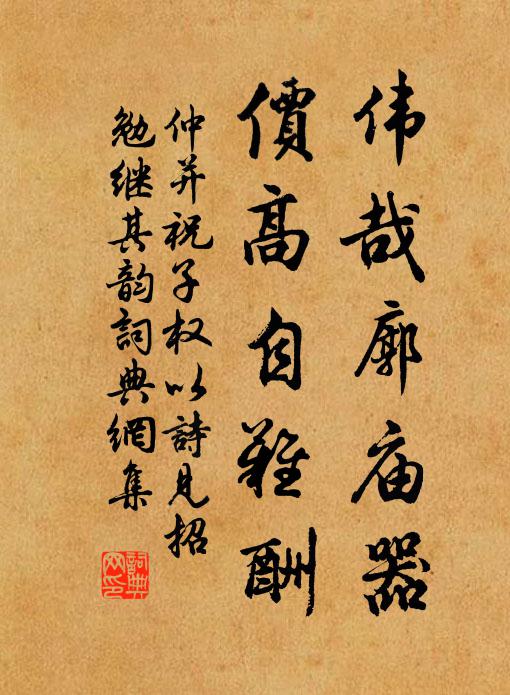 伟哉廓庙器
價高自難酬
仲并祝子权以詩見招
勉继其韵詞典網集
詞典
网印